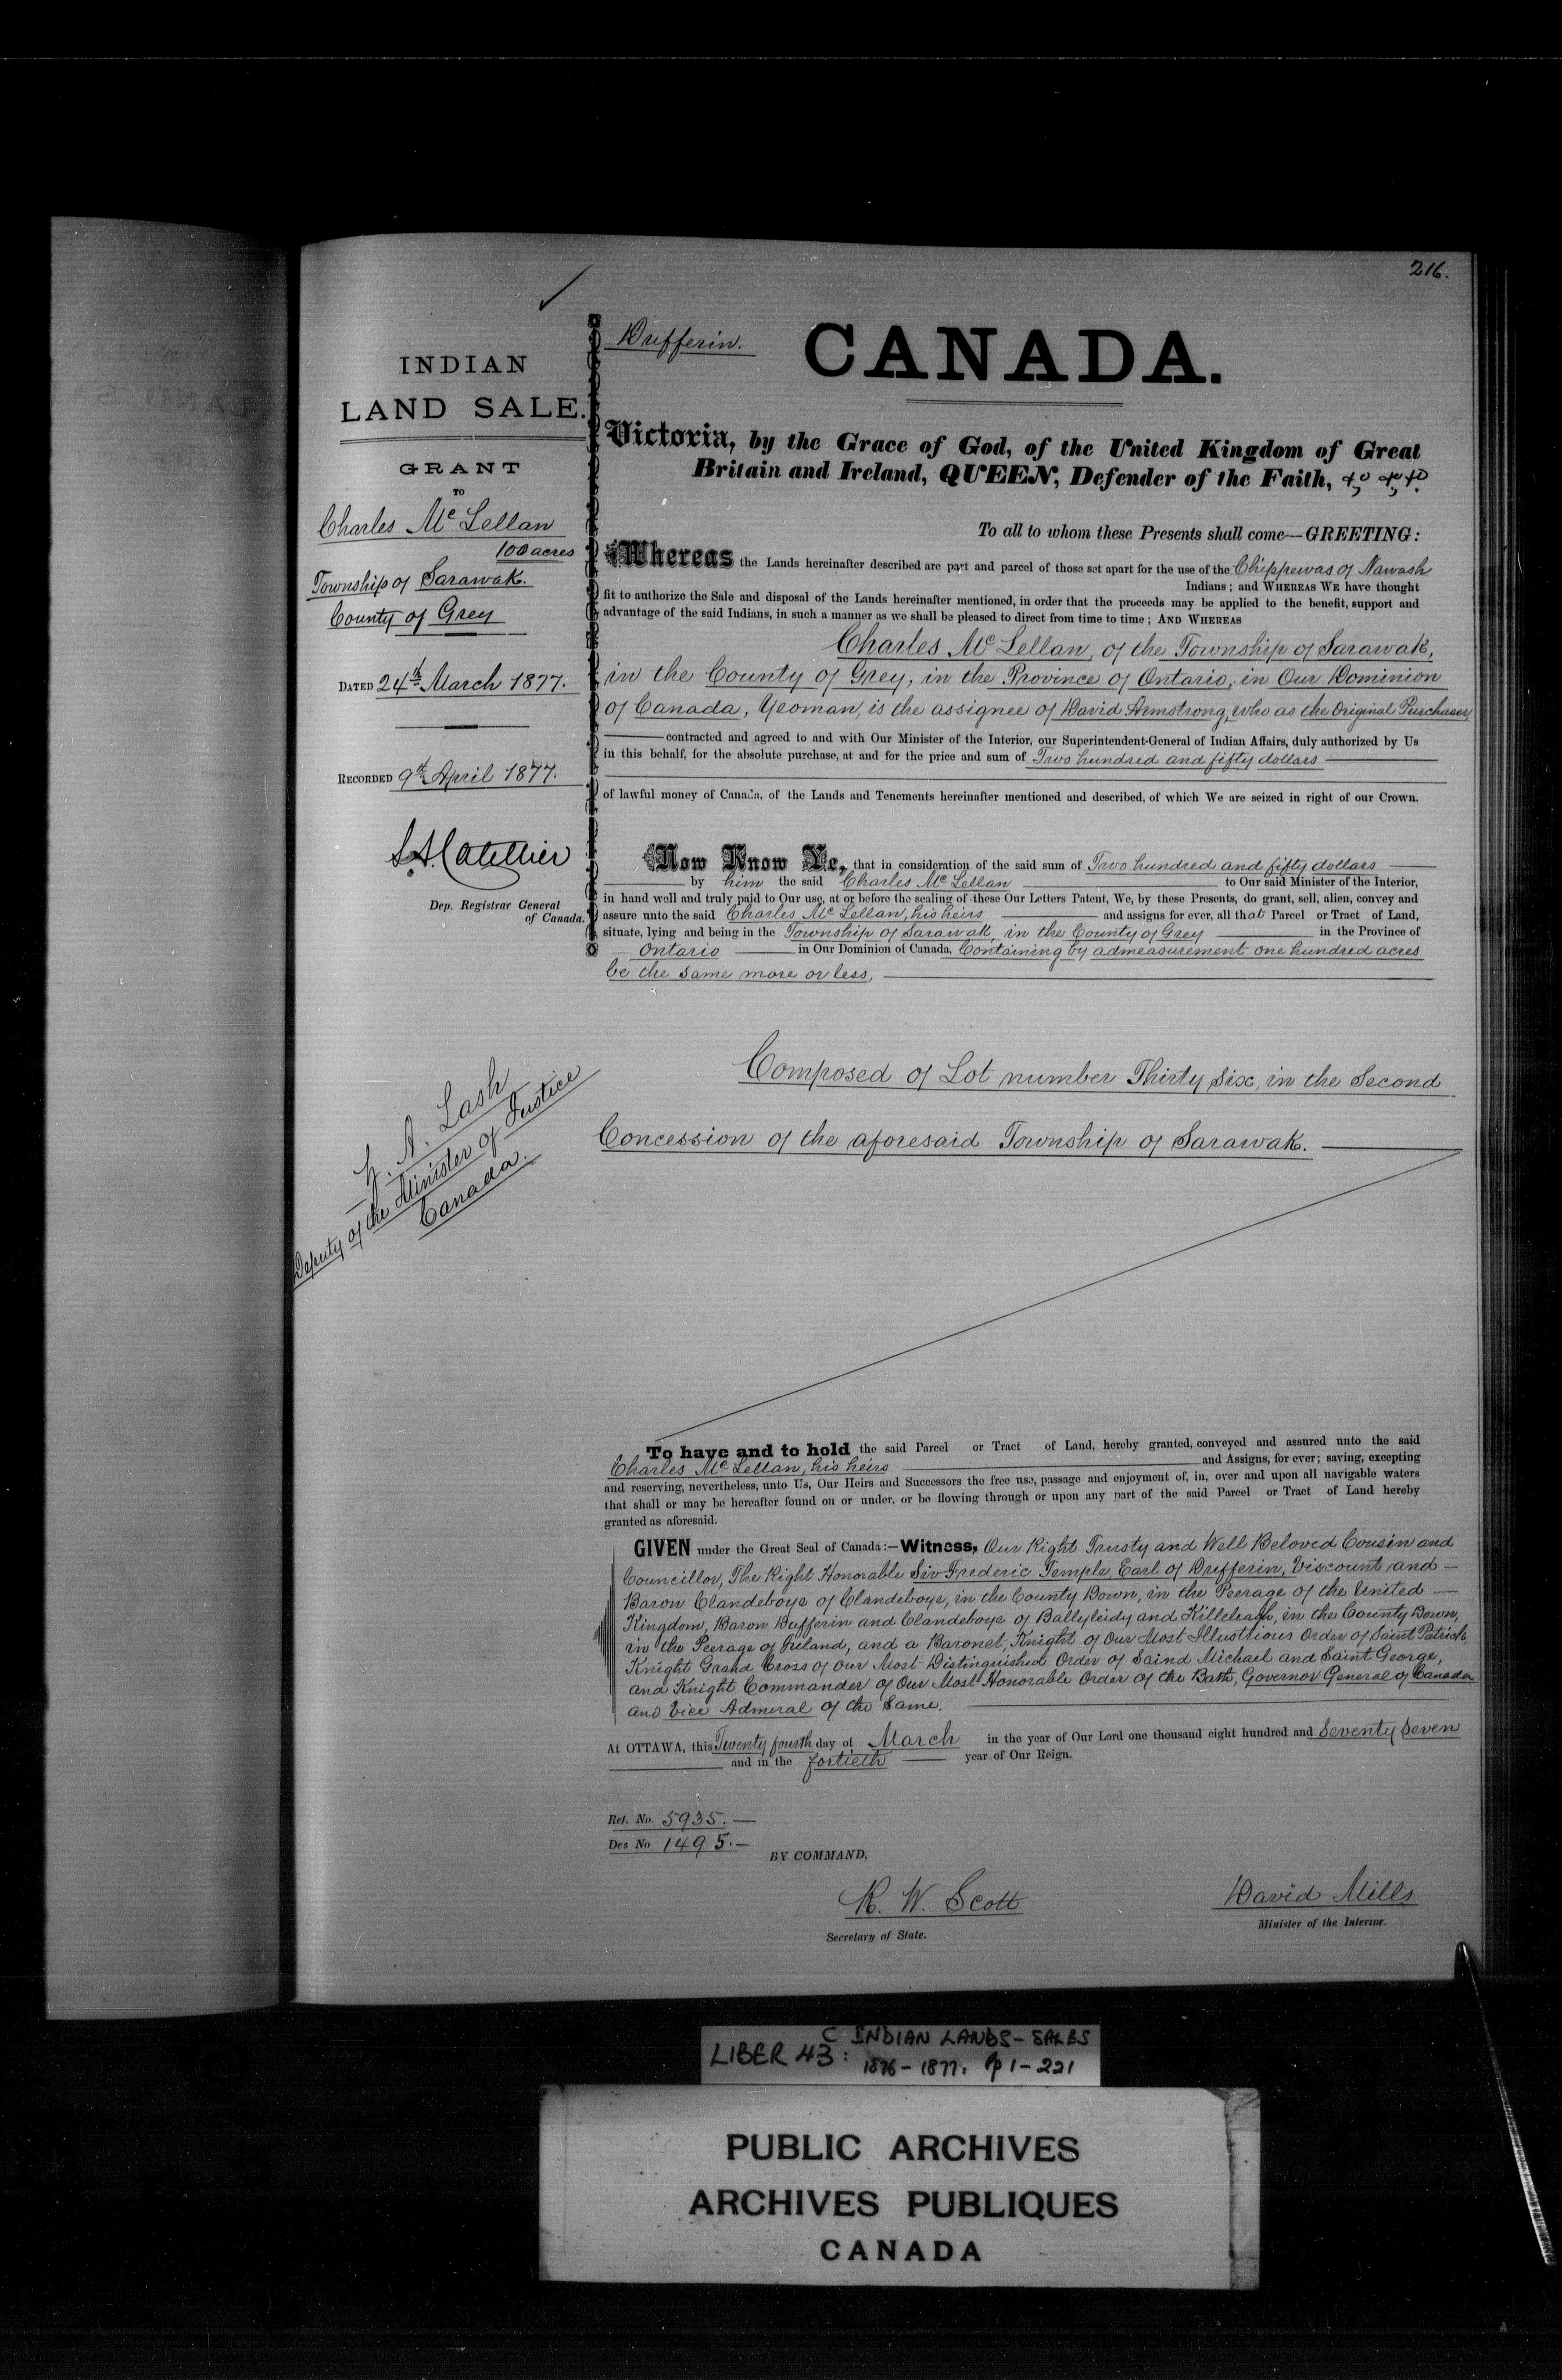 216.
INDIAN
LAND SALE.
GRANT
TO
Charles Mc Lellan
100 acres
Township of Sarawak.
County of Grey
DATED 24th March 1877.
RECORDED 9th April 1877.
Dep. Registrar General
of Canada.
Z. A. Lash
Deputy of the Minister of Justice
Canada.
Dufferin.
CANADA.
Victoria, by the Grace of God, of the United Kingdom of Great
Britain and Ireland, QUEEN, Defender of the Faith, &c, &c, &c.
To all to whom these Presents shall come—GREETING:
Whereas the Lands hereinafter described are part and parcel of those set apart for the use of the Chippewas of Nawash
Indians; and WHEREAS WE have thought
fit to authorize the Sale and disposal of the Lands hereinafter mentioned, in order that the proceeds may be applied to the benefit, support and
advantage of the said Indians, in such a manner as we shall be pleased to direct from time to time; AND WHEREAS
Charles Mc Lellan, of the Township of Sarawak,
in the County of Grey, in the Province of Ontario, in Our Dominion
of Canada, Yeoman, is the assignee of David Armstrong, who as the Original Purchaser,
contracted and agreed to and with Our Minister of the Interior, our Superintendent-General of Indian Affairs, duly authorized by Us
in this behalf, for the absolute purchase, at and for the price and sum of Two hundred and fifty dollars
of lawful money of Canada, of the Lands and Tenements hereinafter mentioned and described, of which We are seized in right of our Crown.
Now Know Ye, that in consideration of the said sum of Two hundred and fifty dollars
by him the said Charles Mc Lellan to Our said Minister of the Interior,
in hand well and truly paid to Our use, at or before the sealing of these Our Letters Patent, We, by these Presents, do grant, sell, alien, convey and
assure unto the said Charles Mc Lellan, his heirs and assigns for ever, all that Parcel or Tract of Land,
situate, lying and being in the Township of Sarawak, in the County of Grey in the Province of
Ontario in Our Dominion of Canada, Containing by admeasurement one hundred acres
be the same more or less,
Composed of Lot number Thirty Six, in the Second
Concession of the aforesaid Township of Sarawak.
To have and to hold the said Parcel or Tract of Land, hereby granted, conveyed and assured unto the said
Charles Mc Lellan, his heirs and Assigns, for ever; saving, excepting
and reserving, nevertheless, unto Us, Our Heirs and Successors the free use, passage and enjoyment of, in, over and upon all navigable waters
that shall or may be hereafter found on or under, or be flowing through or upon any part of the said Parcel or Tract of Land hereby
granted as aforesaid.
GIVEN under the Great Seal of Canada:—Witness, Our Right Trusty and Well Beloved Cousin and
Councillor, The Right Honorable Sir Frederic Temple Earl of Dufferin, Viscount and—
Baron Clandeboye of Clandeboye, in the County Down, in the Peerage of the United—
Kingdom, Baron Dufferin and Clandeboye of Ballyleidy and Killeleagh, in the County Down,
in the Peerage of Ireland, and a Baronet, Knight of Our Most Illustrious Order of Saint Patrick,
Knight Grand Cross of Our Most Distinguished Order of Saind Michael and Saint George,
and Knight Commander of Our Most Honorable Order of the Bath, Governor General of Canada
and Vice Admiral of the Same.
At OTTAWA, this Twenty fourth day of March in the year of Our Lord one thousand eight hundred and Seventy Seven
and in the fortieth year of Our Reign.
Ref. No. 5935.—
Des No 1495.—
BY COMMAND,
R. W. Scott
Secretary of State.
David Mills
Minister of the Interior.
LIBER 43: C INDIAN LANDS-SALES
1876-1877. pp 1-221
PUBLIC ARCHIVES
ARCHIVES PUBLIQUES
CANADA